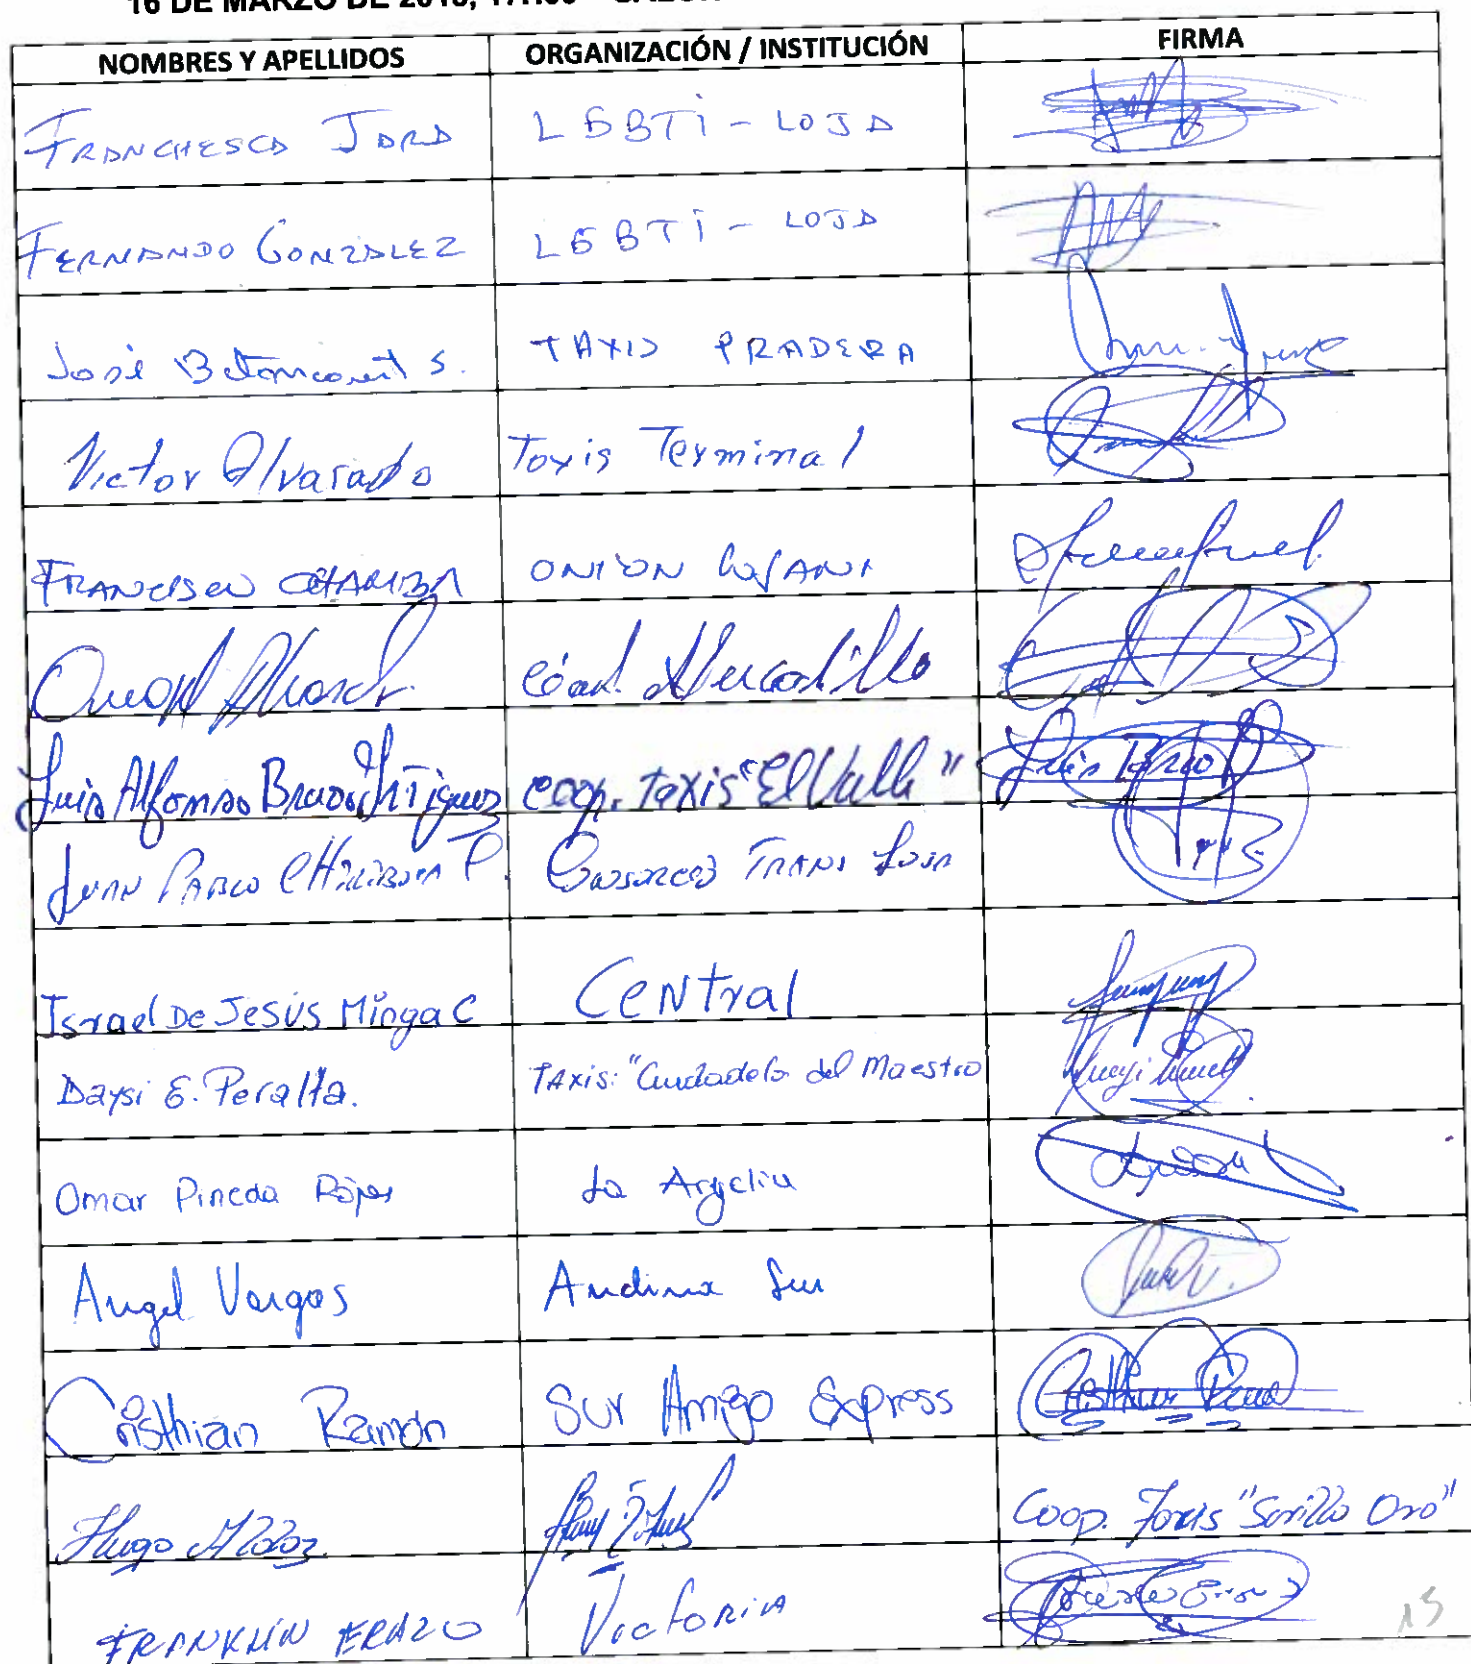 16 DE MARZO DE
NOMBRES Y APELLIDOS ORGANIZACIÓN / INSTITUCIÓN FIRMA
FRANCHESCA JARA LGBTi - LOJA
FERNANDO GONZALEZ LGBTi - LOJA
José Betancourt S. TAXIS PRADERA
Victor Alvarado Taxis Terminal
FRANCISCO CHAMBA UNION LOJANA
Mercadillo
Luis Alfonso Bravo Iñiguez coop. taxis "El Valle" Luis Bravo
JUAN PABLO CHIRIBOGA P. TRANS LOJA
Israel De Jesús Minga C Central
Daysi E. Peralta. TAxis: "Ciudadela del Maestro
Omar Pineda Rojas La Argelia
Angel Vargas Andina Sur
Cristhian Ramón Sur Amigo Express
Hugo Coop. Taxis "Sevillo Oro"
FRANKLIN ERAZO Victoria
15